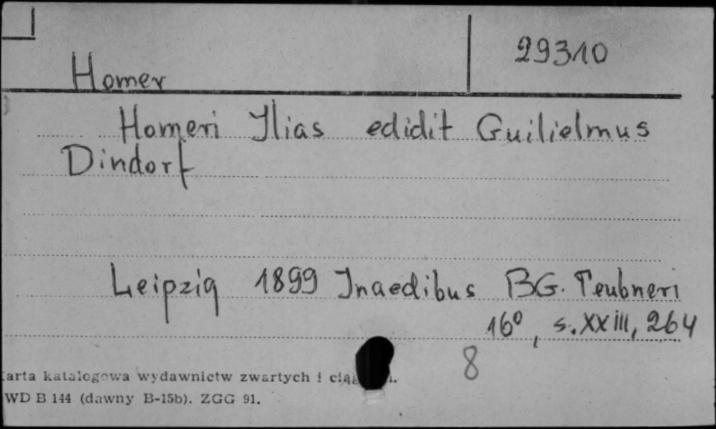 29310
Homer
Homeri Ilias edidit Guilielmus
Dindorf
Leipzig 1899 Inaedibus BG. Teubneri
16°, s. XXIII, 264
8
arta katalogowa wydawnictw zwartych i
WD B 144 (dawny B-15b). ZGG 91.